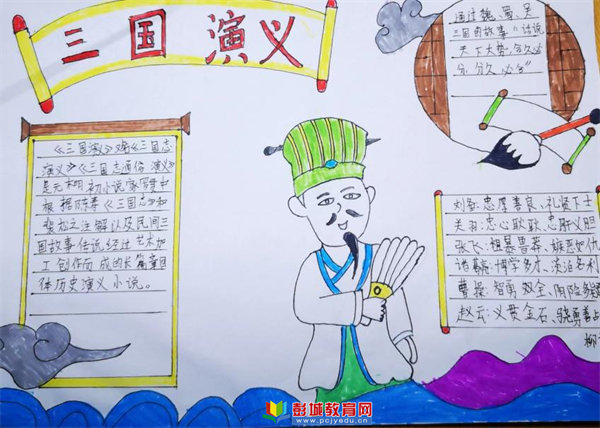 三国演义
通过魏、蜀、吴
三国的故事"话说
天下大势,分久必
合,合久必分"
《三国演义》又名《三国志
演义》《三国志通俗演义》
是元末明初小说家罗贯中
根据陈寿《三国志》和
裴松之注解以及民间三
国故事传说经过艺术加
工创作而成的长篇章回
体历史演义小说。
刘备:忠厚善良、礼贤下士
关羽:忠心耿耿、忠肝义胆
张飞:粗暴鲁莽、嫉恶如仇
诸葛亮:博学多才、淡泊名利
曹操:智勇双全、阴险多
赵云:义贯金石、骁勇善
柳
彭城教育网
www.pcjyedu.cn